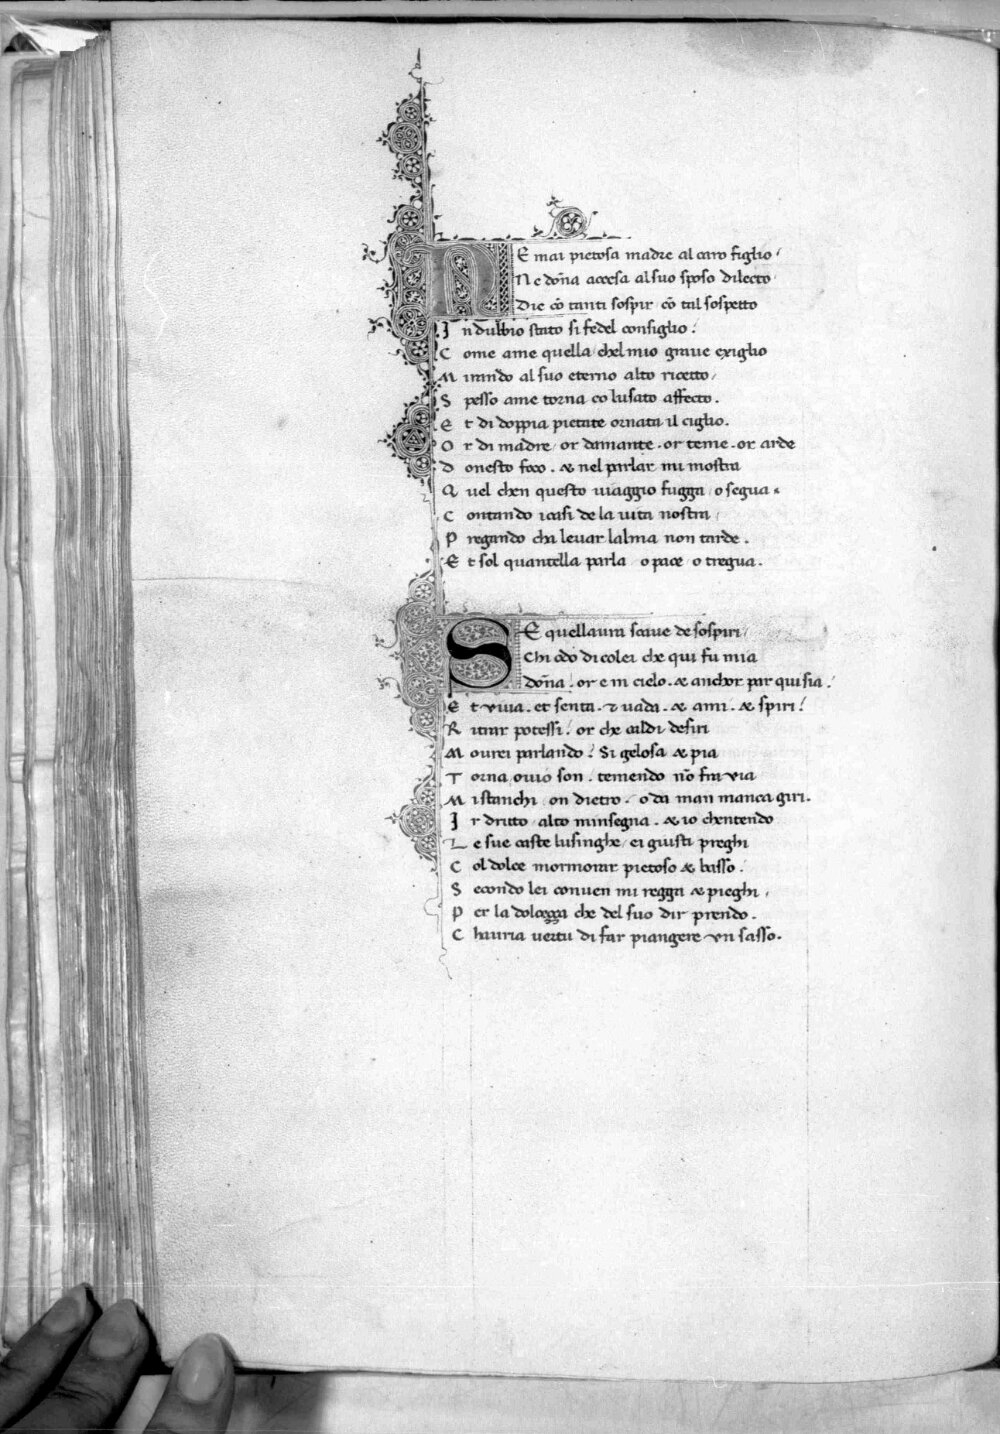 NE mai pietosa madre al caro figlio /
Ne dōna accesa al suo sposo dilecto
Die cō tanti sospir cō tal sospetto
In dubbio stato si fedel consiglio !
Come ame quella / chel mio graue exiglio
Mirando al suo eterno alto ricetto /
Spesso ame torna co lusato affecto .
Et di doppia pietate ornata il ciglio .
Or di madre / or damante . or teme . or arde
Donesto foco . & nel parlar mi mostra
Quel chen questo uiaggio fugga / o segua .
Contando i casi de la uita nostra /
Pregando cha leuar lalma non tarde .
Et sol quantella parla / o pace / o tregua .
SE quellaura soaue de sospiri /
Chi odo di colei che qui fu mia
dōna ! or e in cielo . & anchor par qui sia !
Et viua . et senta . & uada . & ami . & spiri !
Ritrar potessi ! or che caldi desiri
Mourei parlando ! Si gelosa & pia
Torna ouio son ! temendo nō fra via
Mi stanchi / on dietro . o da man manca giri .
Ir dritto / alto minsegna . & io chentendo
Le sue caste lusinghe / ei giusti preghi
Col dolce mormorar pietoso & basso .
Secondo lei conuen mi regga & pieghi /
Per la dolcezza che del suo dir prendo .
Chauria uertu di far piangere vn sasso .